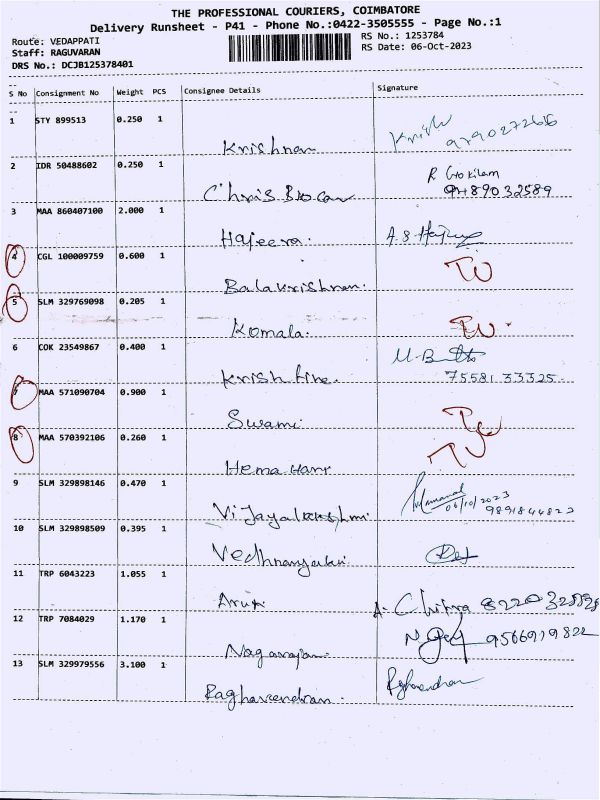 THE PROFESSIONAL COURIERS, COIMBATORE
Delivery Runsheet - P41 - Phone No.:0422-3505555 - Page No.:1
Route: VEDAPPATI RS No.: 1253784
Staff: RAGUVARAN RS Date: 06-Oct-2023
DRS No.: DCJB125378401
S No Consignment No Weight PCS Consignee Details Signature
1 STY 899513 0.250 1
Krishnan
2 IDR 50488602 0.250 1 R Gokilam
Chris 9489032589
3 MAA 860407100 2.000 1
Hajeera. A.S.
4 CGL 100009759 0.600 1
Balakrishnan.
5 SLM 329769098 0.205 1
Komala.
6 COK 23549867 0.400 1
Krish fire. 75581 33325
7 MAA 571090704 0.900 1
Swami
8 MAA 570392106 0.260 1
Hema
9 SLM 329898146 0.470 1
06/10/2023
Vijayalakshmi 9891844823
10 SLM 329898509 0.395 1
11 TRP 6043223 1.055 1
A. Chitra
12 TRP 7084029 1.170 1
9566919822
Nagarajan
13 SLM 329979556 3.100 1
Raghavendran. Raghavendran